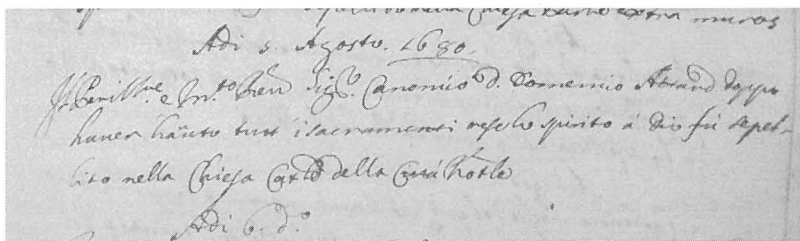 nella Chiesa extra muros
Adi 5. Agosto. 1680.
Il Perill.ue e M.to Rev.d Sig.r Canonico D. Domenico Abrand doppo
haver hauuto tutt i sacramenti rese lo spirito á Dio fú sepel-
lito nella Chiesa Cat.le della Cittá
Adi 6. d.o